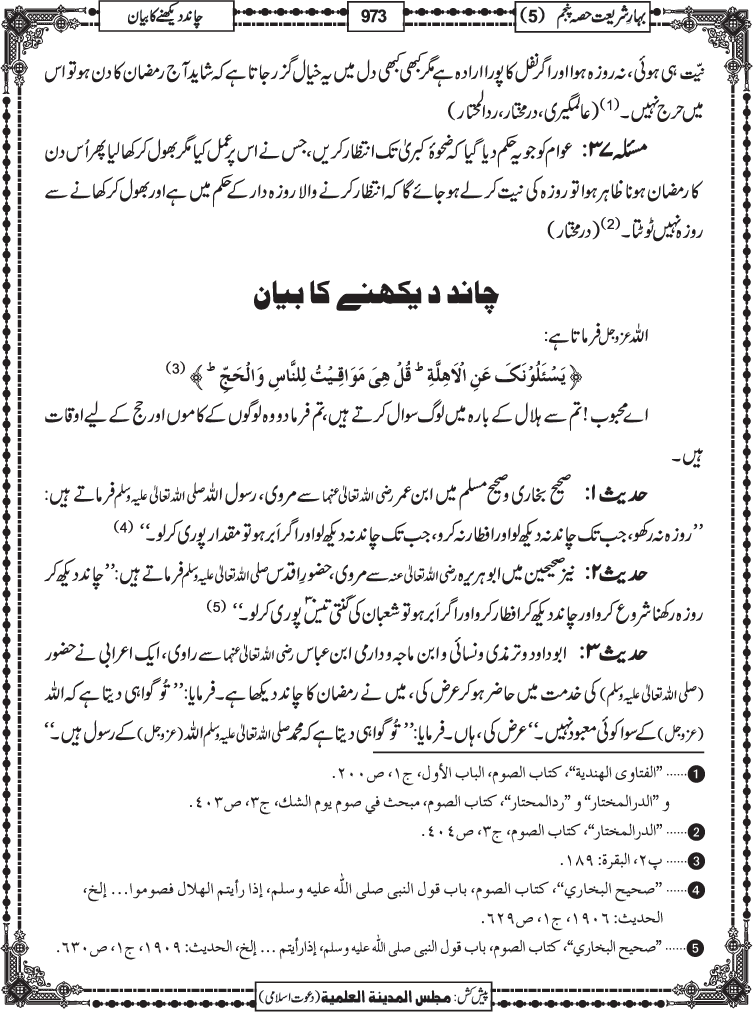 بہارِ شریعت حصہ پنجم (5)
973
چاند دیکھنے کا بیان
نیّت ہی ہوئی، نہ روزہ ہوا اور اگر نفل کا پورا ارادہ ہے مگر کبھی کبھی دل میں یہ خیال گزر جاتا ہے کہ شاید آج رمضان کا دن ہو تو اس
میں حرج نہیں۔ (1) (عالمگیری، درمختار، ردالمحتار)
مسئلہ ۳۷: عوام کو جو یہ حکم دیا گیا کہ ضحوۂ کبریٰ تک انتظار کریں، جس نے اس پر عمل کیا مگر بھول کر کھا لیا پھر اُس دن
کا رمضان ہونا ظاہر ہوا تو روزہ کی نیت کر لے ہو جائے گا کہ انتظار کرنے والا روزہ دار کے حکم میں ہے اور بھول کر کھانے سے
روزہ نہیں ٹوٹتا۔ (2) (درمختار)
چاند دیکھنے کا بیان
اللہ عزوجل فرماتا ہے:
﴿ یَسْـَٔلُوْنَکَ عَنِ الْاَهِلَّةِ ؕ قُلْ هِیَ مَوَاقِیْتُ لِلنَّاسِ وَالْحَجِّ ؕ ﴾ (3)
اے محبوب! تم سے ہلال کے بارہ میں لوگ سوال کرتے ہیں، تم فرما دو وہ لوگوں کے کاموں اور حج کے لیے اوقات
ہیں۔
حدیث ۱: صحیح بخاری و صحیح مسلم میں ابن عمر رضی اللہ تعالیٰ عنہما سے مروی، رسول اللہ صلی اللہ تعالیٰ علیہ وسلم فرماتے ہیں:
’’روزہ نہ رکھو، جب تک چاند نہ دیکھ لو اور افطار نہ کرو، جب تک چاند نہ دیکھ لو اور اگر اَبر ہو تو مقدار پوری کر لو۔‘‘ (4)
حدیث ۲: نیز صحیحین میں ابوہریرہ رضی اللہ تعالیٰ عنہ سے مروی، حضورِ اقدس صلی اللہ تعالیٰ علیہ وسلم فرماتے ہیں: ’’چاند دیکھ کر
روزہ رکھنا شروع کرو اور چاند دیکھ کر افطار کرو اور اگر اَبر ہو تو شعبان کی گنتی تیس ۳۰ پوری کر لو۔‘‘ (5)
حدیث ۳: ابوداود و ترمذی و نسائی و ابن ماجہ و دارمی ابن عباس رضی اللہ تعالیٰ عنہما سے راوی، ایک اعرابی نے حضور
(صلی اللہ تعالیٰ علیہ وسلم) کی خدمت میں حاضر ہو کر عرض کی، میں نے رمضان کا چاند دیکھا ہے۔ فرمایا: ’’تُو گواہی دیتا ہے کہ اللہ
(عزوجل) کے سوا کوئی معبود نہیں۔‘‘ عرض کی، ہاں۔ فرمایا: ’’تُو گواہی دیتا ہے کہ محمد صلی اللہ تعالیٰ علیہ وسلم اللہ (عزوجل) کے رسول ہیں۔‘‘
1 ...... ”الفتاوى الهندية“، كتاب الصوم، الباب الأول، ج١، ص٢٠٠.
و ”الدرالمختار“ و ”ردالمحتار“، كتاب الصوم، مبحث في صوم يوم الشك، ج٣، ص٤٠٣.
2 ...... ”الدرالمختار“، كتاب الصوم، ج٣، ص٤٠٤.
3 ...... پ٢، البقرة: ١٨٩.
4 ...... ”صحيح البخاري“، كتاب الصوم، باب قول النبى صلى الله عليه وسلم، إذا رأيتم الهلال فصوموا... إلخ،
الحديث: ١٩٠٦، ج١، ص٦٢٩.
5 ...... ”صحيح البخاري“، كتاب الصوم، باب قول النبى صلى الله عليه وسلم، إذارأيتم ... إلخ، الحديث: ١٩٠٩، ج١، ص٦٣٠.
پیش کش: مجلس المدينة العلمية (دعوت اسلامی)